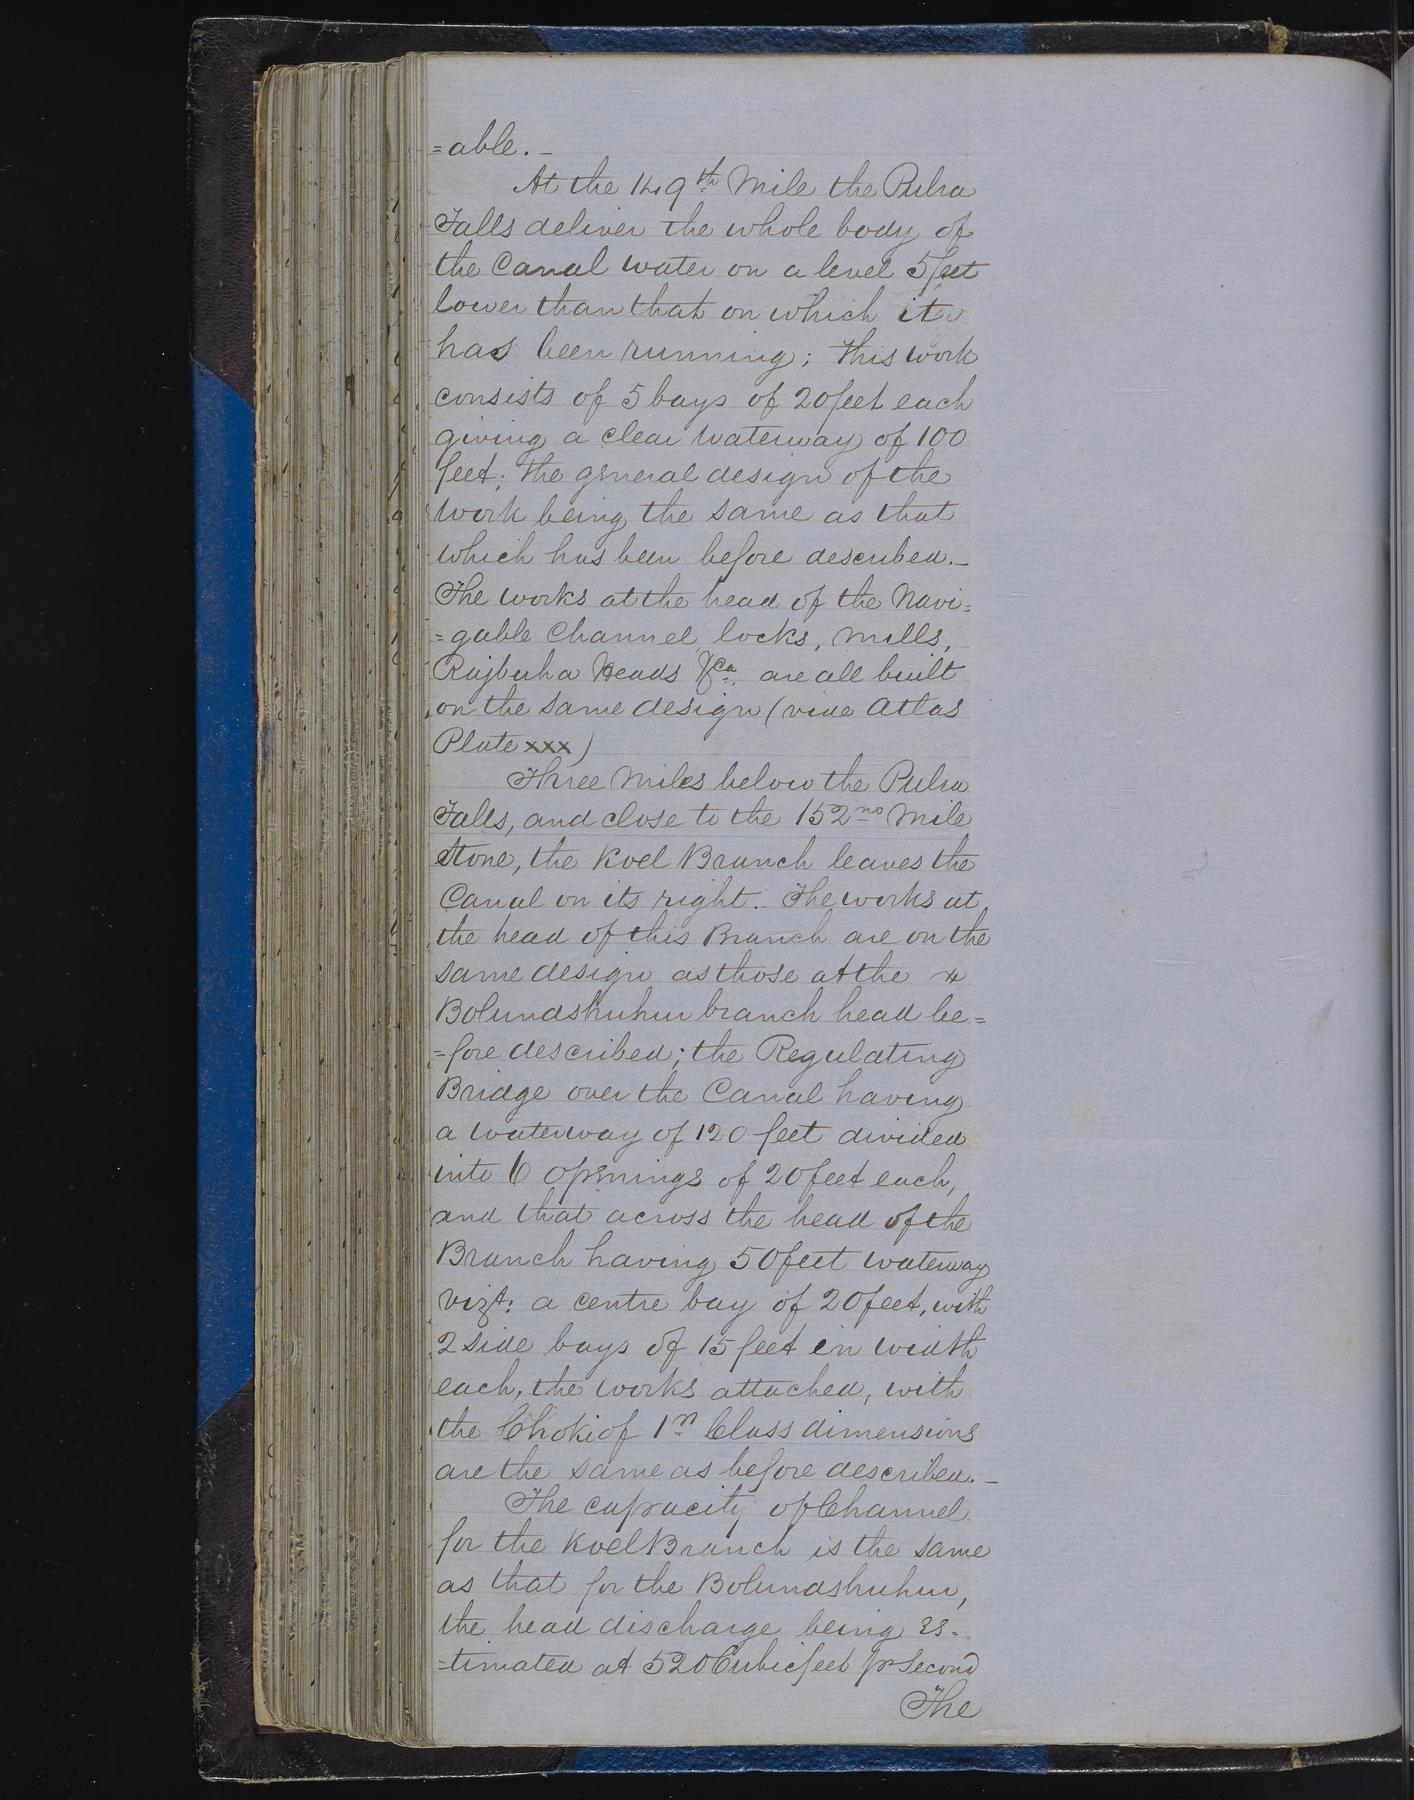 =able.–
At the 149th Mile the Pulra
Falls deliver the whole body of
the Canal water on a level 5 feet
lower than that on which it
has been running; this work
consists of 5 bays of 20 feet each
giving a clear waterway of 100
feet; the general design of the
work being the same as that
which has been before described.–
The works at the head of the Navi=
=gable Channel, locks, mills,
Rajbuha Heads &ca. are all built
on the same design (vide Atlas
Plate xxx)
Three Miles below the Pulra
Falls, and close to the 152nd Mile
Stone, the Koel Branch leaves the
Canal on its right. The works at
the head of this Branch are on the
same design as those at the
Bolundshuhur branch head be=
=fore described; the Regulating
Bridge over the Canal having
a waterway of 120 feet divided
into 6 openings of 20 feet each,
and that across the head of the
Branch having 50 feet waterway
vizt: a centre bay of 20 feet, with
2 side bays of 15 feet in width
each, the works attached, with
the Choki of 1st Class dimensions
are the same as before described.–
The capacity of Channel
for the Koel Branch is the same
as that for the Bolundshuhur,
the head discharge being es=
=timated at 520 Cubic feet pr Second
The